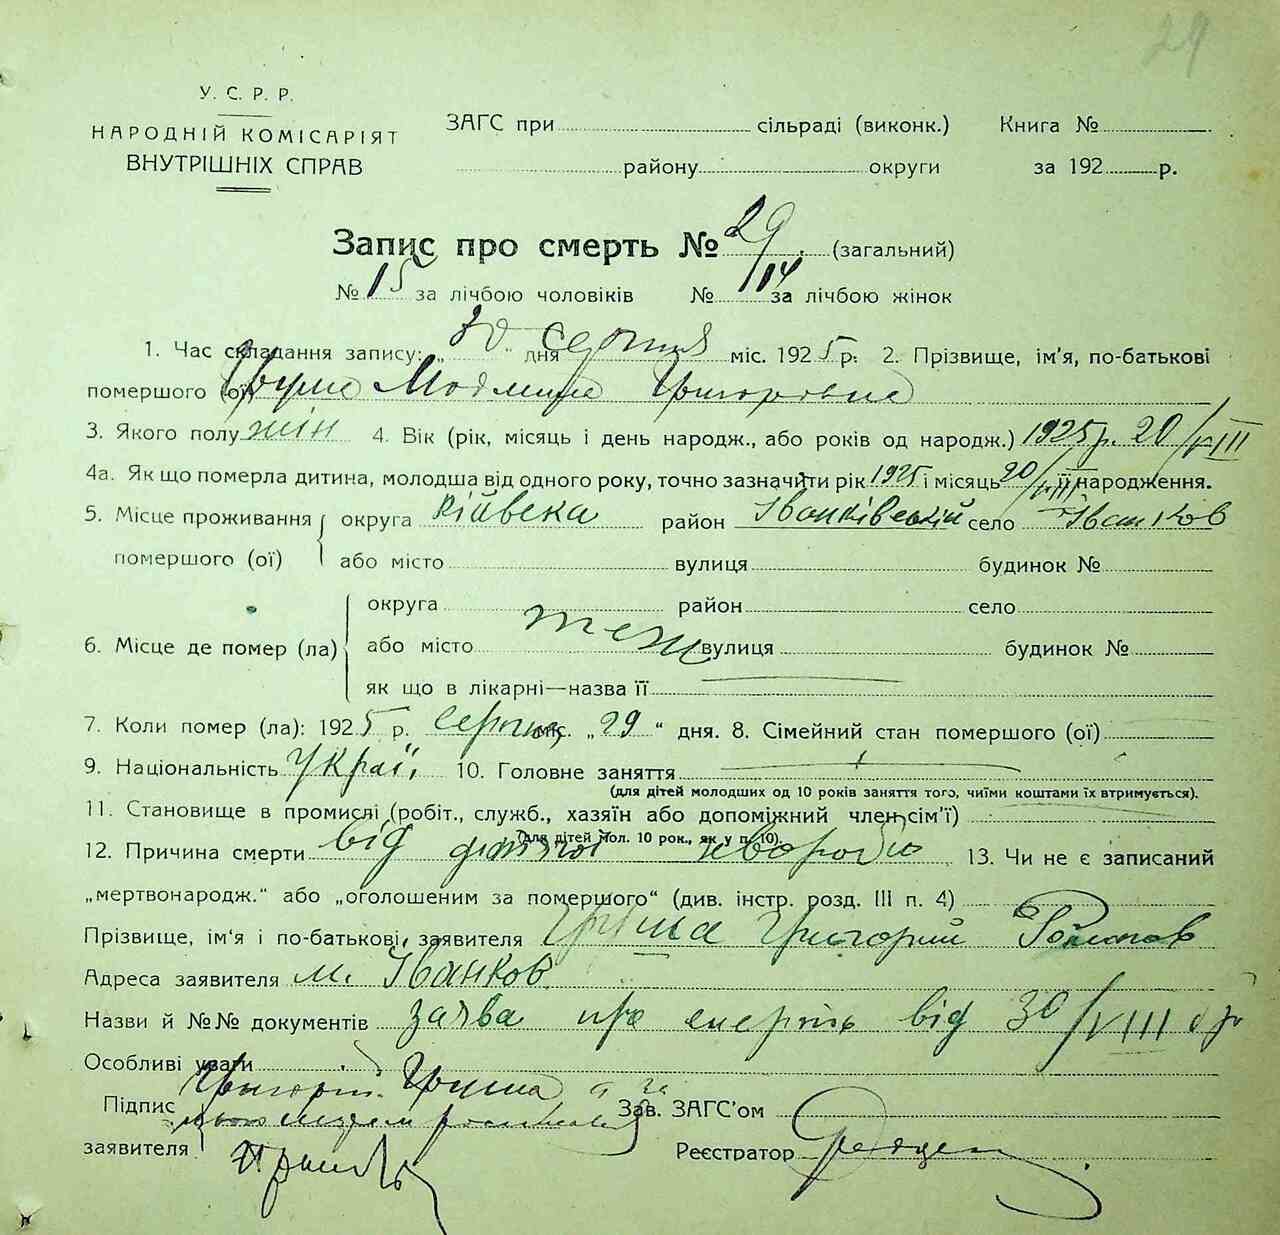 29
У. С. Р. Р.
НАРОДНІЙ КОМІСАРІЯТ
ВНУТРІШНІХ СПРАВ
ЗАГС при сільраді (виконк.) Книга №
району округи за 192 р.
Запис про смерть № 29 (загальний)
№ 15 за лічбою чоловіків № 14 за лічбою жінок
1. Час складання запису: „30" дня серпня міс. 1925 р. 2. Прізвище, ім'я, по-батькові
помершого (ої) Григоровна
3. Якого полу жін 4. Вік (рік, місяць і день народж., або років од народж.) 1925 р. 20/VIII
4а. Як що померла дитина, молодша від одного року, точно зазначити рік 1925 і місяць 20/VIII її народження.
5. Місце проживання помершого (ої) округа Київска район Іванківський село Іванков
або місто вулиця будинок №
6. Місце де помер (ла) округа район село
або місто теж вулиця будинок №
як що в лікарні—назва її
7. Коли помер (ла): 1925 р. серпня міс. „29" дня. 8. Сімейний стан помершого (ої)
9. Національність Украї. 10. Головне заняття
(для дітей молодших од 10 років заняття того, чиїми коштами їх втримується).
11. Становище в промислі (робіт., служб., хазяїн або допоміжний член сім'ї)
(для дітей мол. 10 рок., як у п. 10).
12. Причина смерти від дитячої хвороби 13. Чи не є записаний
„мертвонародж." або „оголошеним за помершого" (див. інстр. розд. III п. 4)
Прізвище, ім'я і по-батькові заявителя Груша Григорий
Адреса заявителя м. Іванков
Назви й №№ документів заява про смерть від 30/VIII
Особливі уваги
Підпис заявителя Григорій Груша
Зав. ЗАГС'ом
Реєстратор